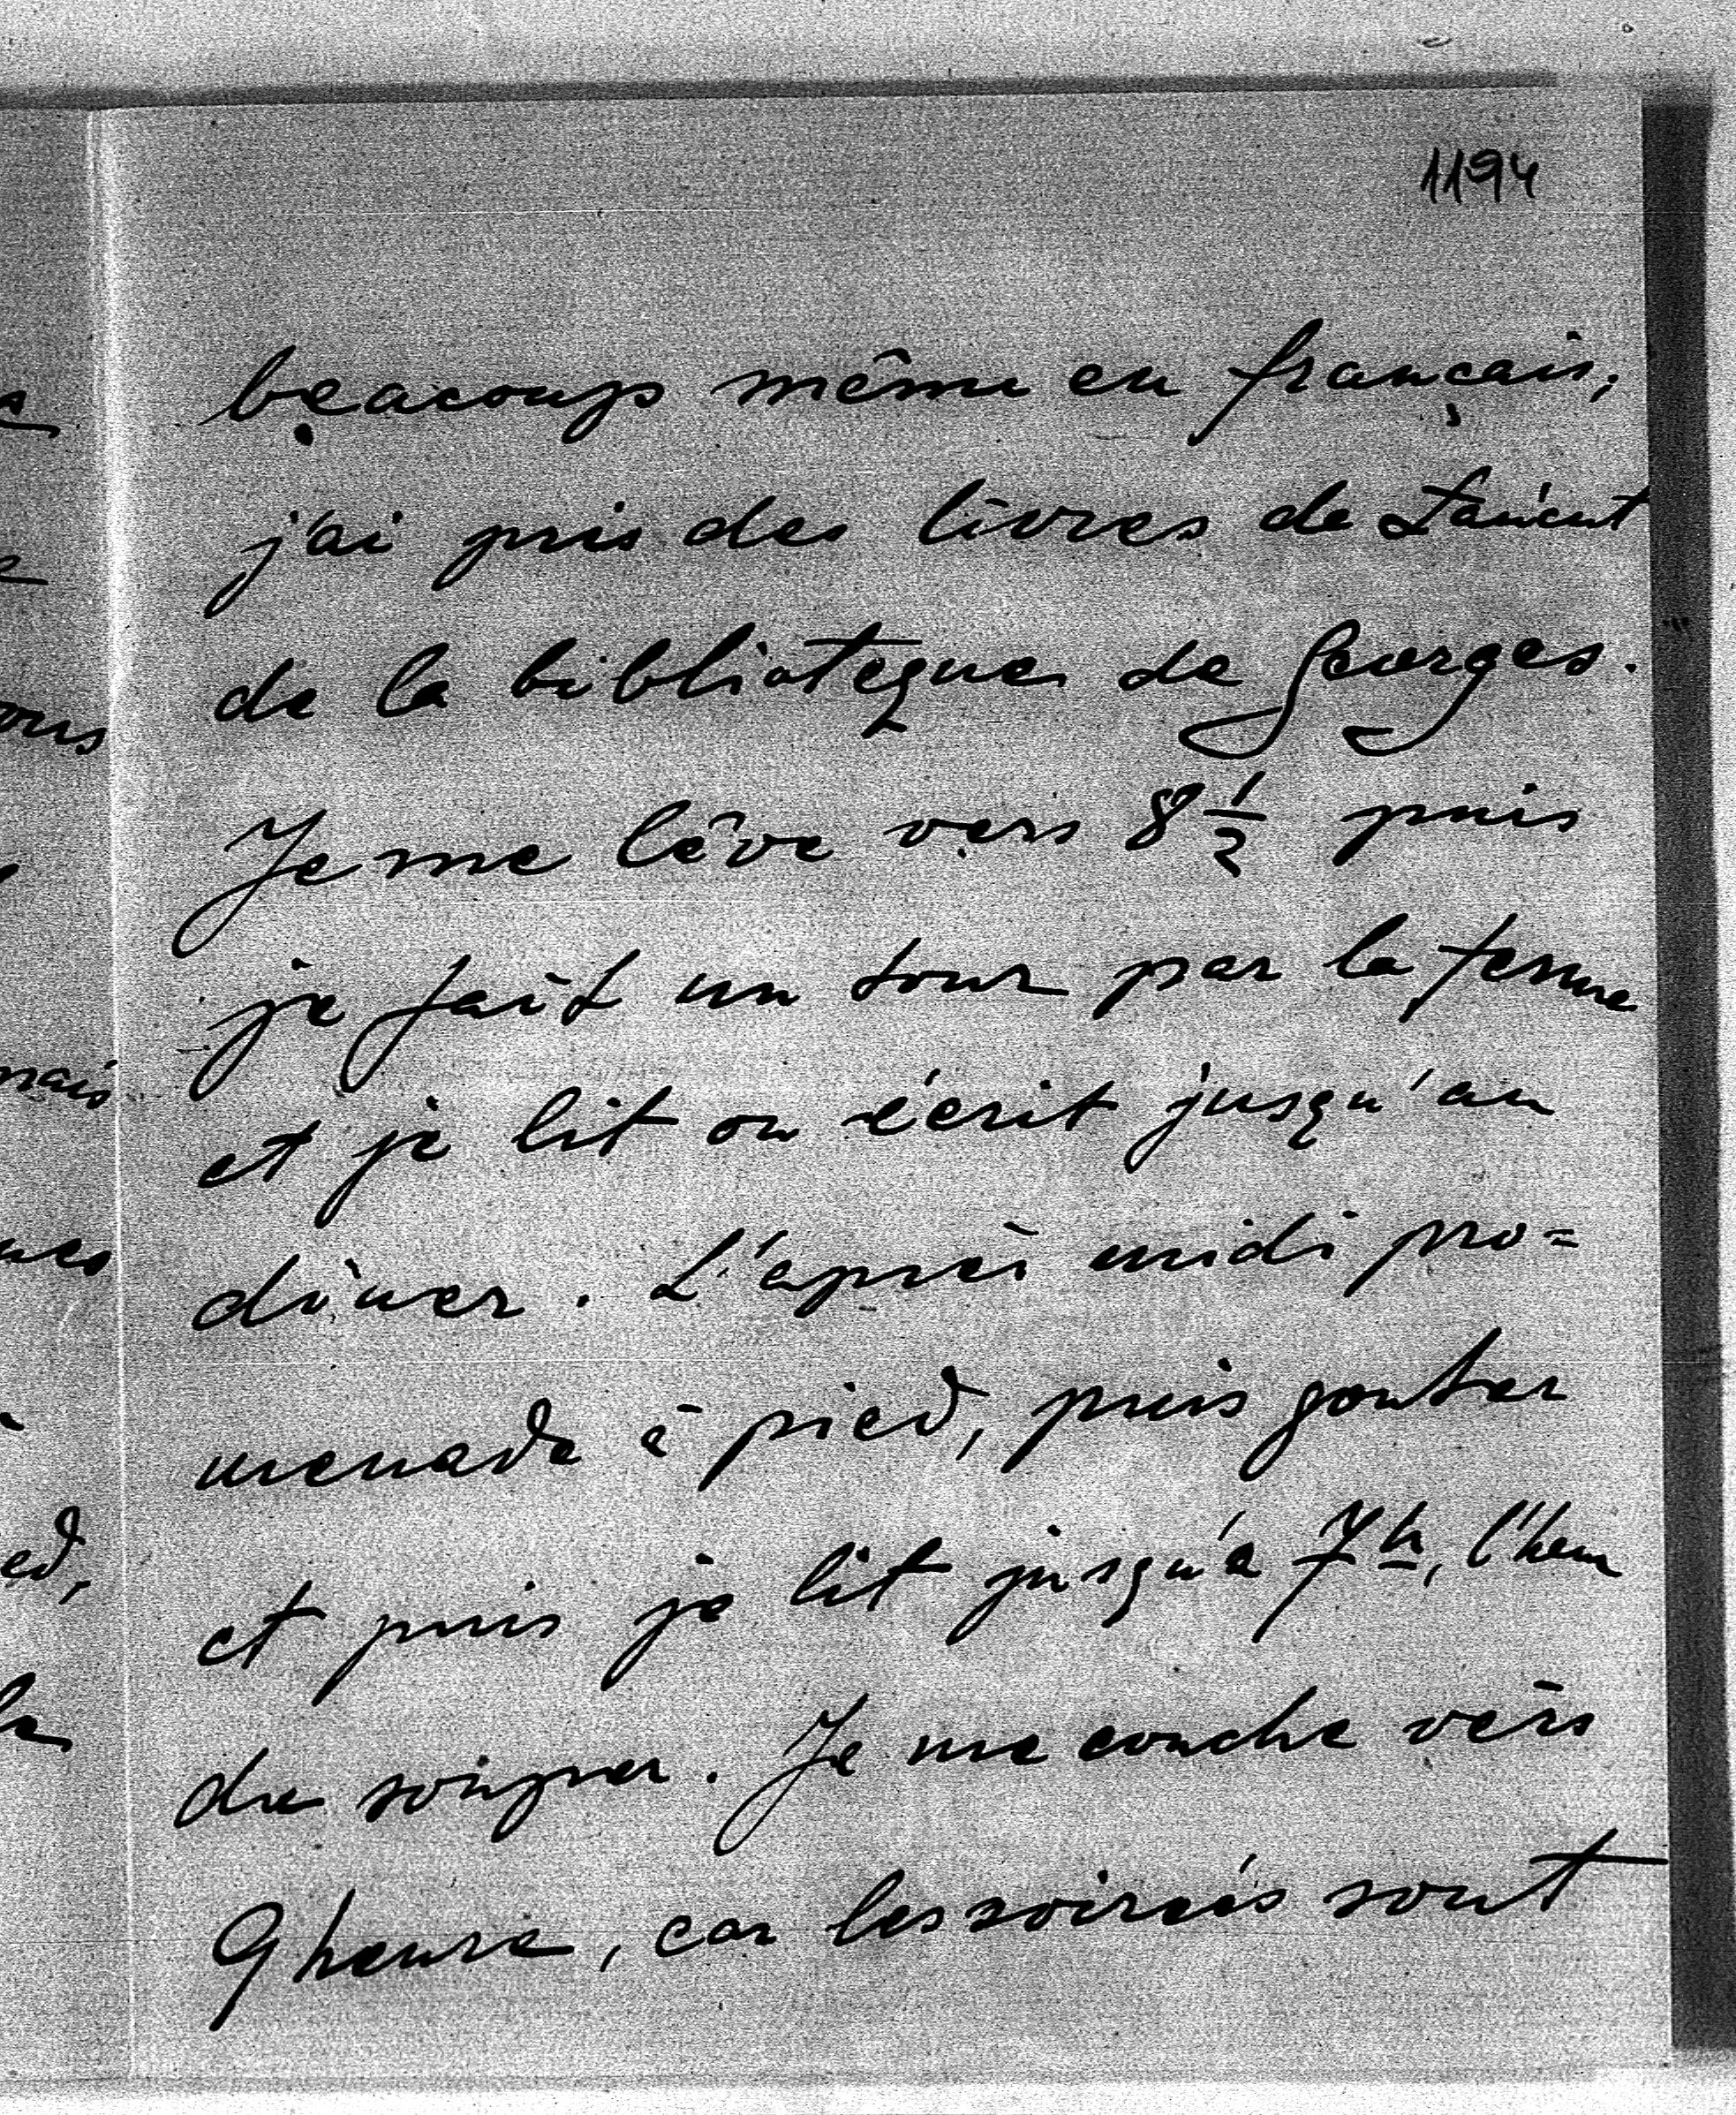 1194
beacoup même en français,
j'ai pris des livres de
de la bibliotèque de Georges.
Je me lêve vers 8 1/2 puis
je fait un tour par la ferme
et je lit ou écrit jusqu'au
dîner. L'après midi pro=
menade à pied, puis gouter
et puis je lit jusqu'à 7 h, l'heu
du souper. Je me couche vers
9 heure, car les soireés sont
ous
mais
ed,